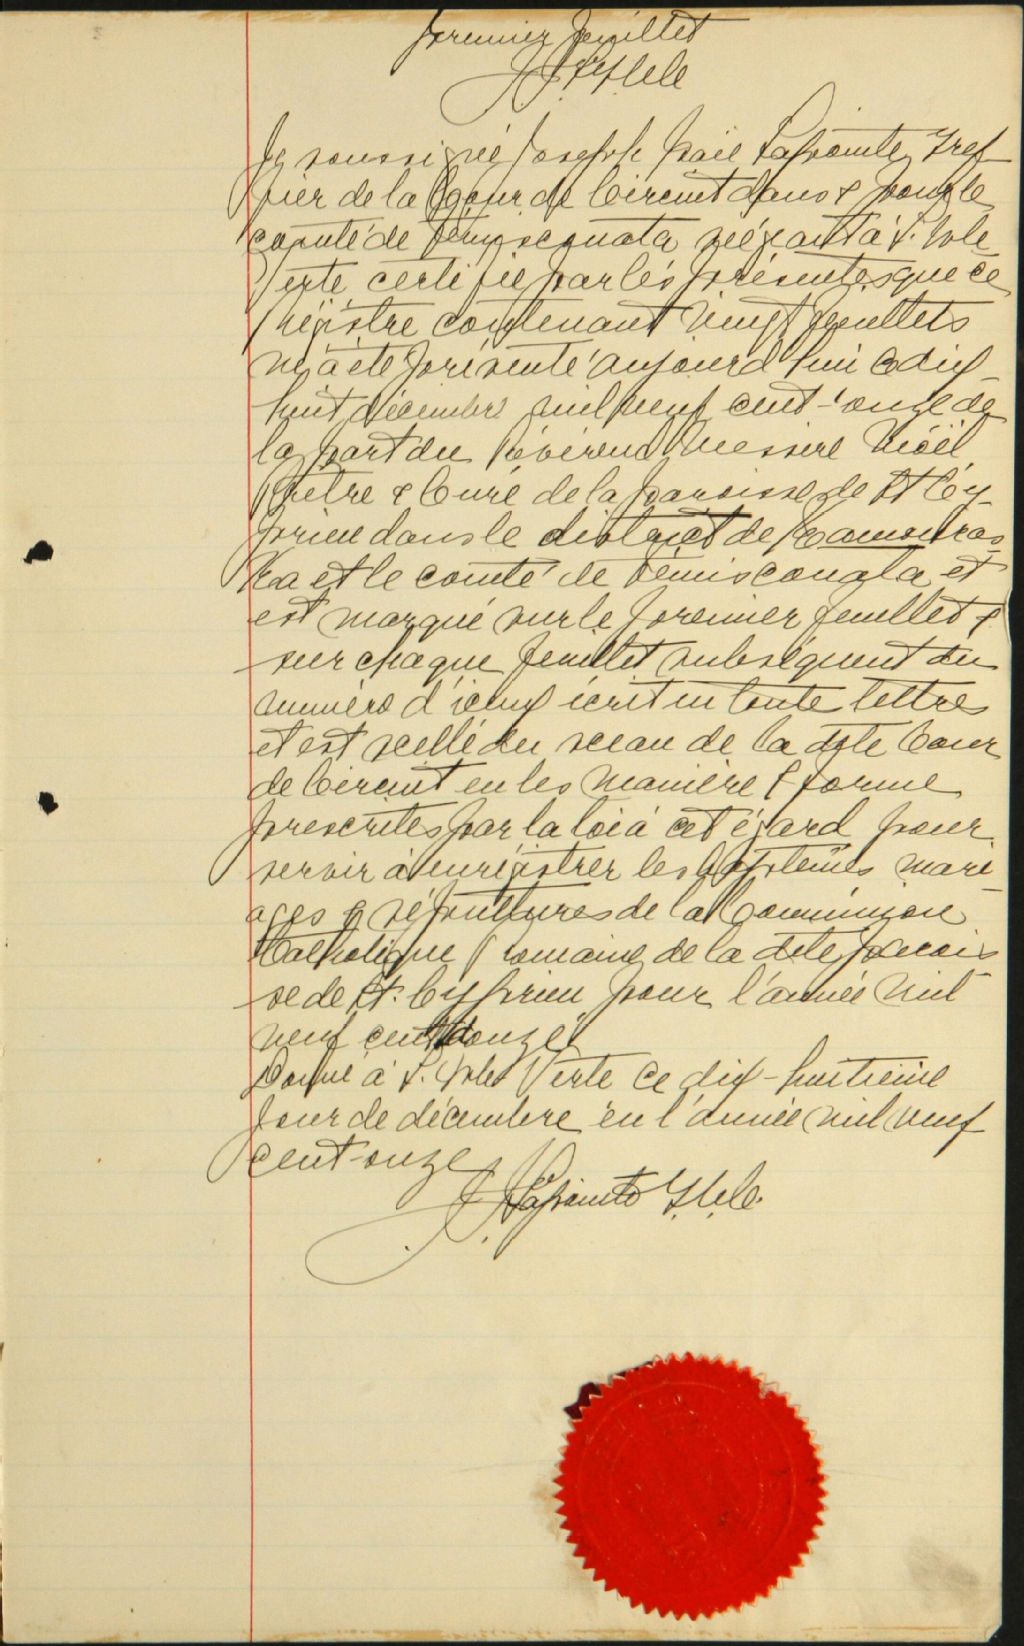 premier feuillet
Je soussigné Joseph Lapointe, Gref
fier de la Cour de Circuit dans & pour le
comté de Temiscouata siégeant à l'. Isle
Verte certifie par les présentes que ce
registre contenant vingt feuillets
m'a été présenté aujourd'hui ce dix-
huit décembre mil neuf cent-onze de
la part du Révérend Messire Nöel
Prêtre & Curé de la paroisse de St Cy-
prien dans le district de Kamouras
ka et le comté de Temiscouata et
est marqué sur le premier feuillet &
sur chaque feuillet subséquent du
numéro d'icelui écrit en toute lettres
et est scellé du sceau de la dite Cour
de Circuit en les manière & forme
prescrites par la loi à cet égard pour
servir à enregistrer les baptêmes mari-
ages & sépultures de la Communion
Catholique Romaine de la dite parois
se de St. Cyprien pour l'année mil
neuf cent douze
Donné à l'. Isle Verte ce dix-huitième
jour de décembre en l'année mil neuf
cent-onze
Lapointe G.C.C.